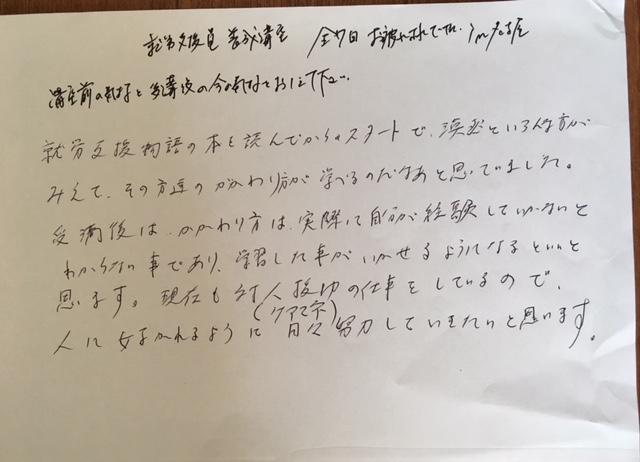 就労支援員 養成講座 全7日 お疲れさまでした. in 名古屋
講座前の気持と受講後の今の気持をお書き下さい.
就労支援物語の本を読んでからのスタートで、漠然といろんな方が
みえて、その方達のかかわり方が学べるのだなあと思っていました。
受講後は、かかわり方は、実際に自分が経験していかないと
わからない事であり、学習した事がいかせるようになるといいと
思います。現在も対人援助の仕事をしているので、
(ケアマネ)
人に好かれるように日々努力していきたいと思います。